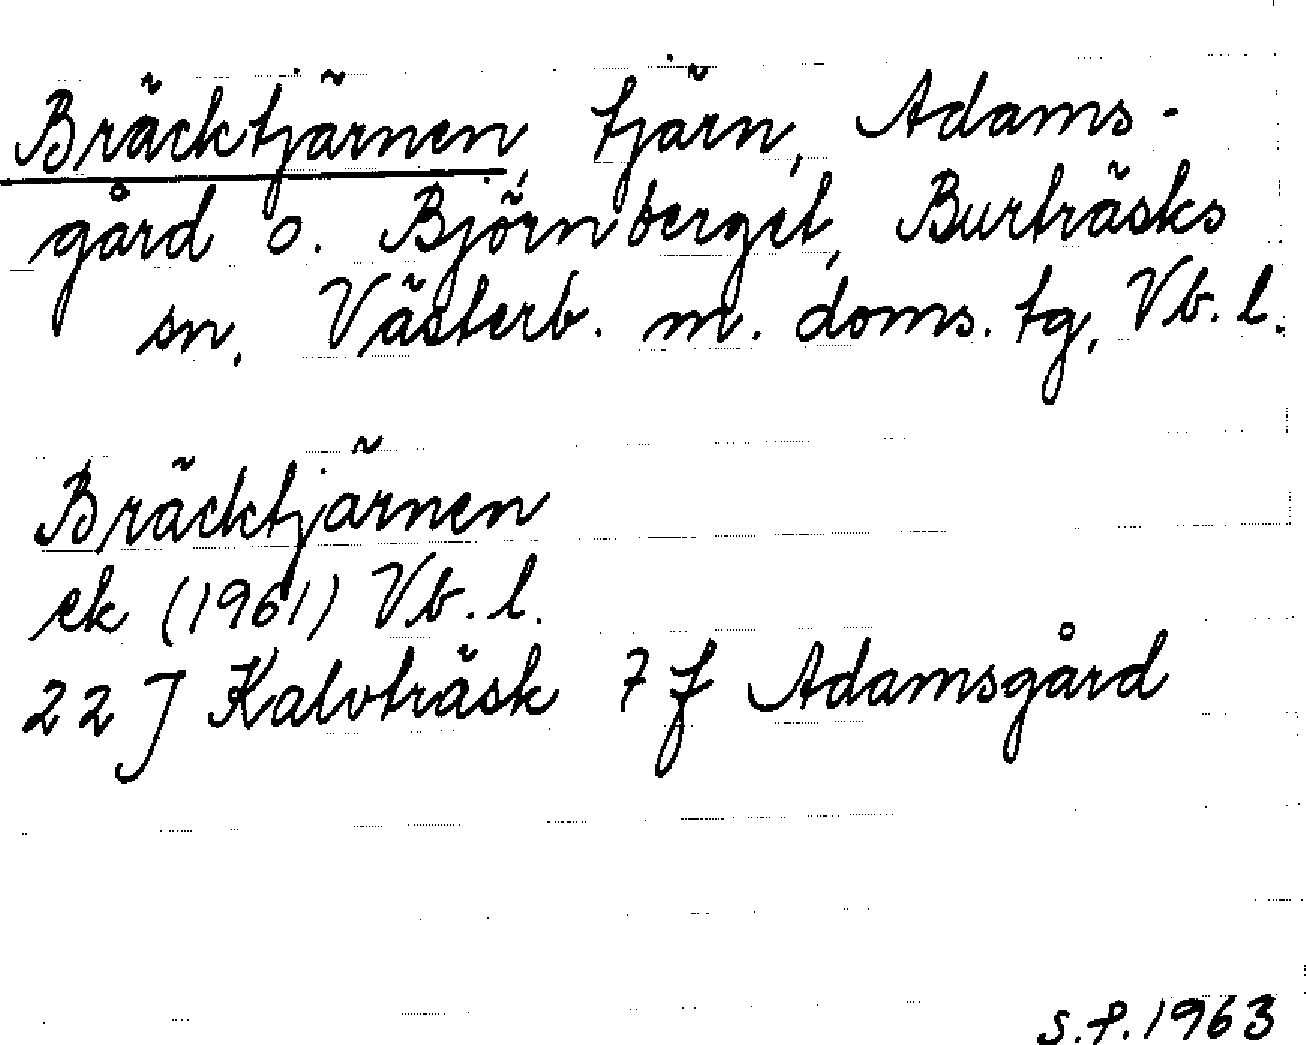 Bräcktjärnen, tjärn, Adams-
gård o. Björnberget, Burträsks
sn, Västerb. m. doms. tg, Vb. l.
Bräcktjärnen
ek (1961) Vb. l.
22 J Kalvträsk 7 f Adamsgård
S.F. 1963